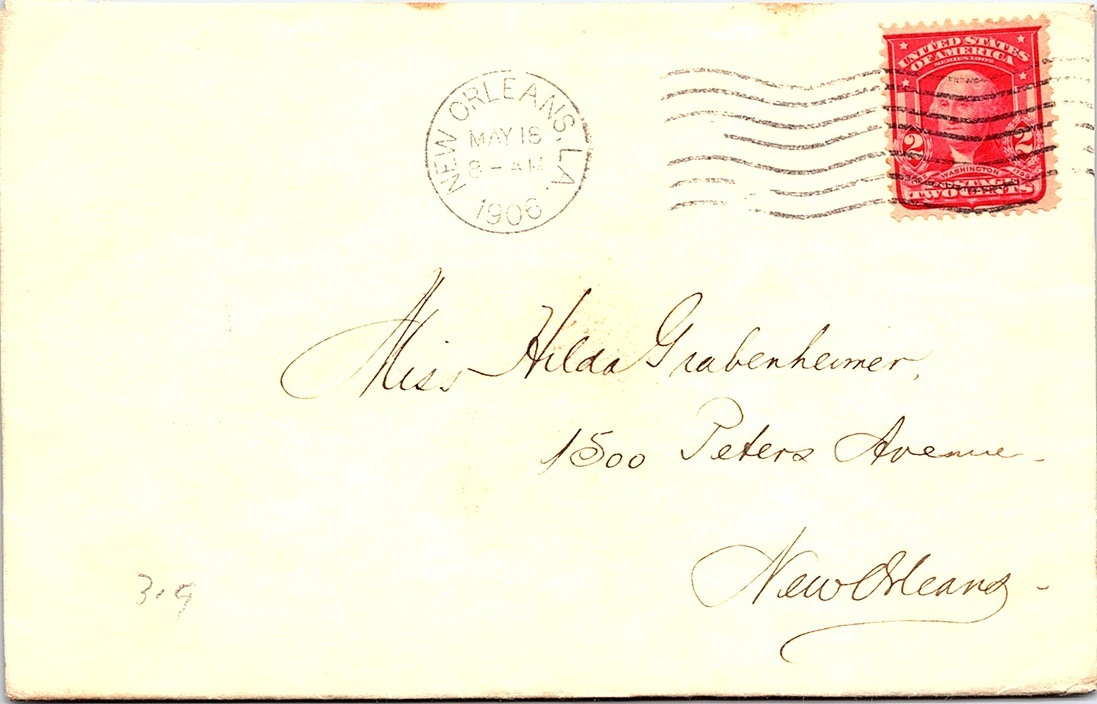 UNITED STATES
OF AMERICA
SERIES 1902
NEW ORLEANS, LA.
MAY 18
8 - AM
1906
2 2
WASHINGTON
TWO CENTS
Miss Hilda Grabenheimer,
1500 Peters Avenue -
New Orleans -
3.9